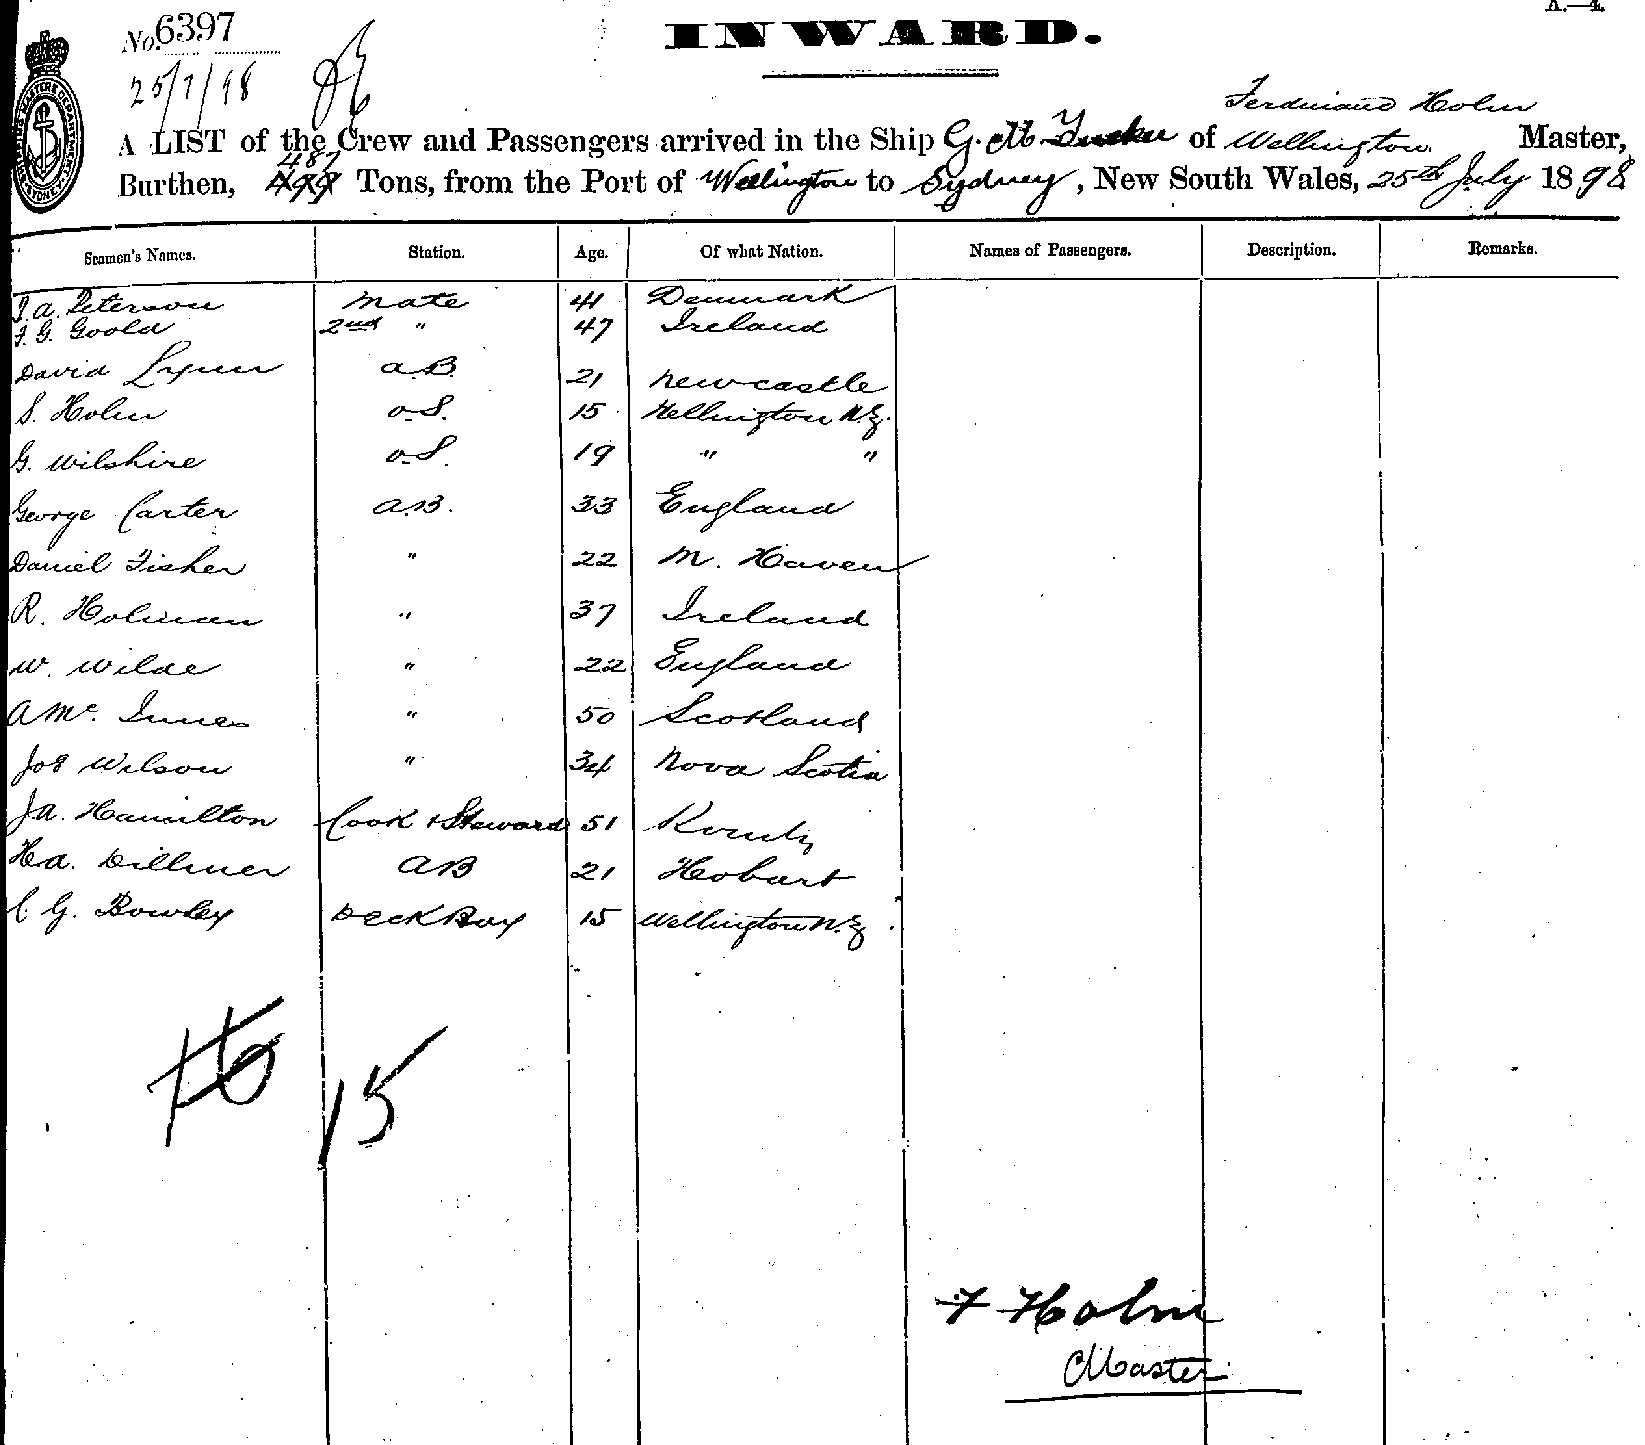 A.—4.
No. 6397
INWARD.
25/7/98
Ferdinand Holm
A LIST of the Crew and Passengers arrived in the Ship G. M. Tucker of Wellington Master,
487
Burthen, Tons, from the Port of Wellington to Sydney, New South Wales, 25th July 1898
Seamen's Names. Station. Age. Of what Nation. Names of Passengers. Description. Remarks.
J. A. Peterson Mate 41 Denmark
F. G. Goold 2nd " 47 Ireland
David Lynn A.B. 21 Newcastle
S. Holm O.S. 15 Wellington N.Z.
G. Wilshire O.S. 19 " "
George Carter A.B. 33 England
Daniel Fisher " 22 M. Haven
R. Holman " 37 Ireland
W. Wilde " 22 England
A Mc. Innes " 50 Scotland
Jos Wilson " 34 Nova Scotia
J A. Hamilton Cook & Steward 51
H A. Dillmer AB 21 Hobart
C G. Bowley Deck Boy 15 Wellington N.Z.
16 15
F Holm
Master